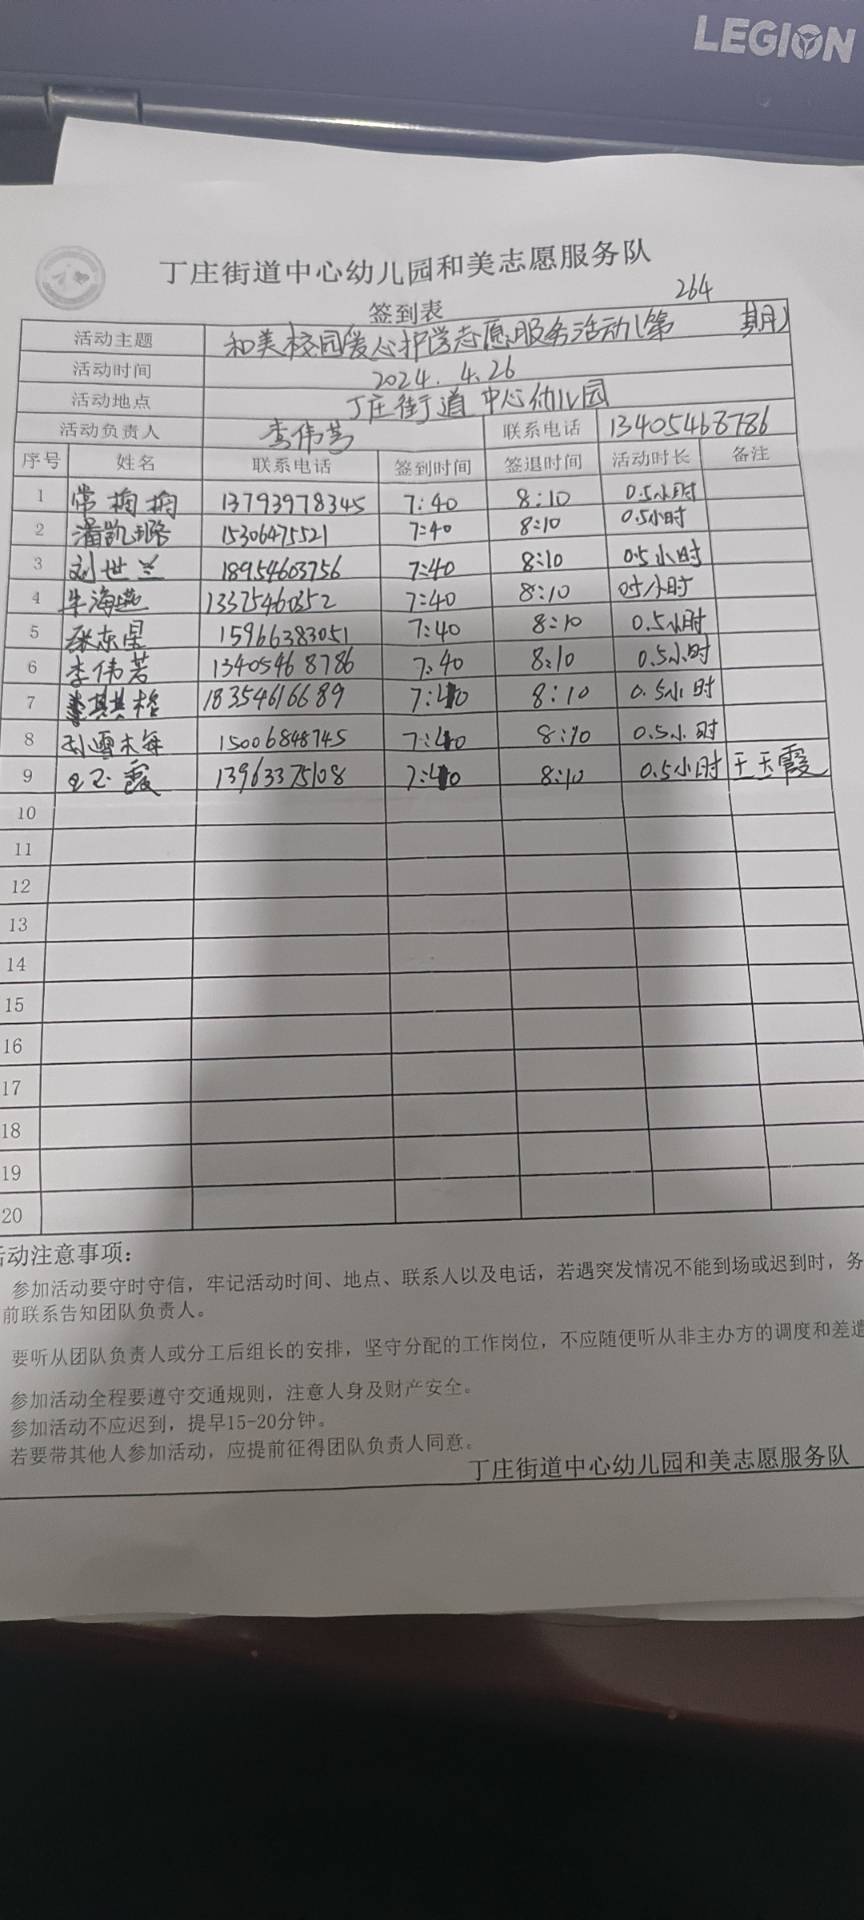 LEGION
丁庄街道中心幼儿园和美志愿服务队
签到表
264
活动主题 和美校园爱心护学志愿服务活动(第 期)
活动时间 2024.4.26
活动地点 丁庄街道中心幼儿园
活动负责人 李伟芳 联系电话 13405468786
序号 姓名 联系电话 签到时间 签退时间 活动时长 备注
1 常梅梅 13793978345 7:40 8:10 0.5小时
2 潘凯璐 15306475521 7:40 8:10 0.5小时
3 刘世兰 18954603756 7:40 8:10 0.5小时
4 牛海燕 13375460352 7:40 8:10 0.5小时
5 张东星 15966383051 7:40 8:10 0.5小时
6 李伟芳 13405468786 7:40 8:10 0.5小时
7 18354616689 7:40 8:10 0.5小时
8 15006848745 7:40 8:10 0.5小时
9 王玉霞 13963375108 7:40 8:10 0.5小时 王玉霞
10
11
12
13
14
15
16
17
18
19
20
动注意事项:
参加活动要守时守信，牢记活动时间、地点、联系人以及电话，若遇突发情况不能到场或迟到时，务
前联系告知团队负责人。
要听从团队负责人或分工后组长的安排，坚守分配的工作岗位，不应随便听从非主办方的调度和差遣
参加活动全程要遵守交通规则，注意人身及财产安全。
参加活动不应迟到，提早15-20分钟。
若要带其他人参加活动，应提前征得团队负责人同意。
丁庄街道中心幼儿园和美志愿服务队